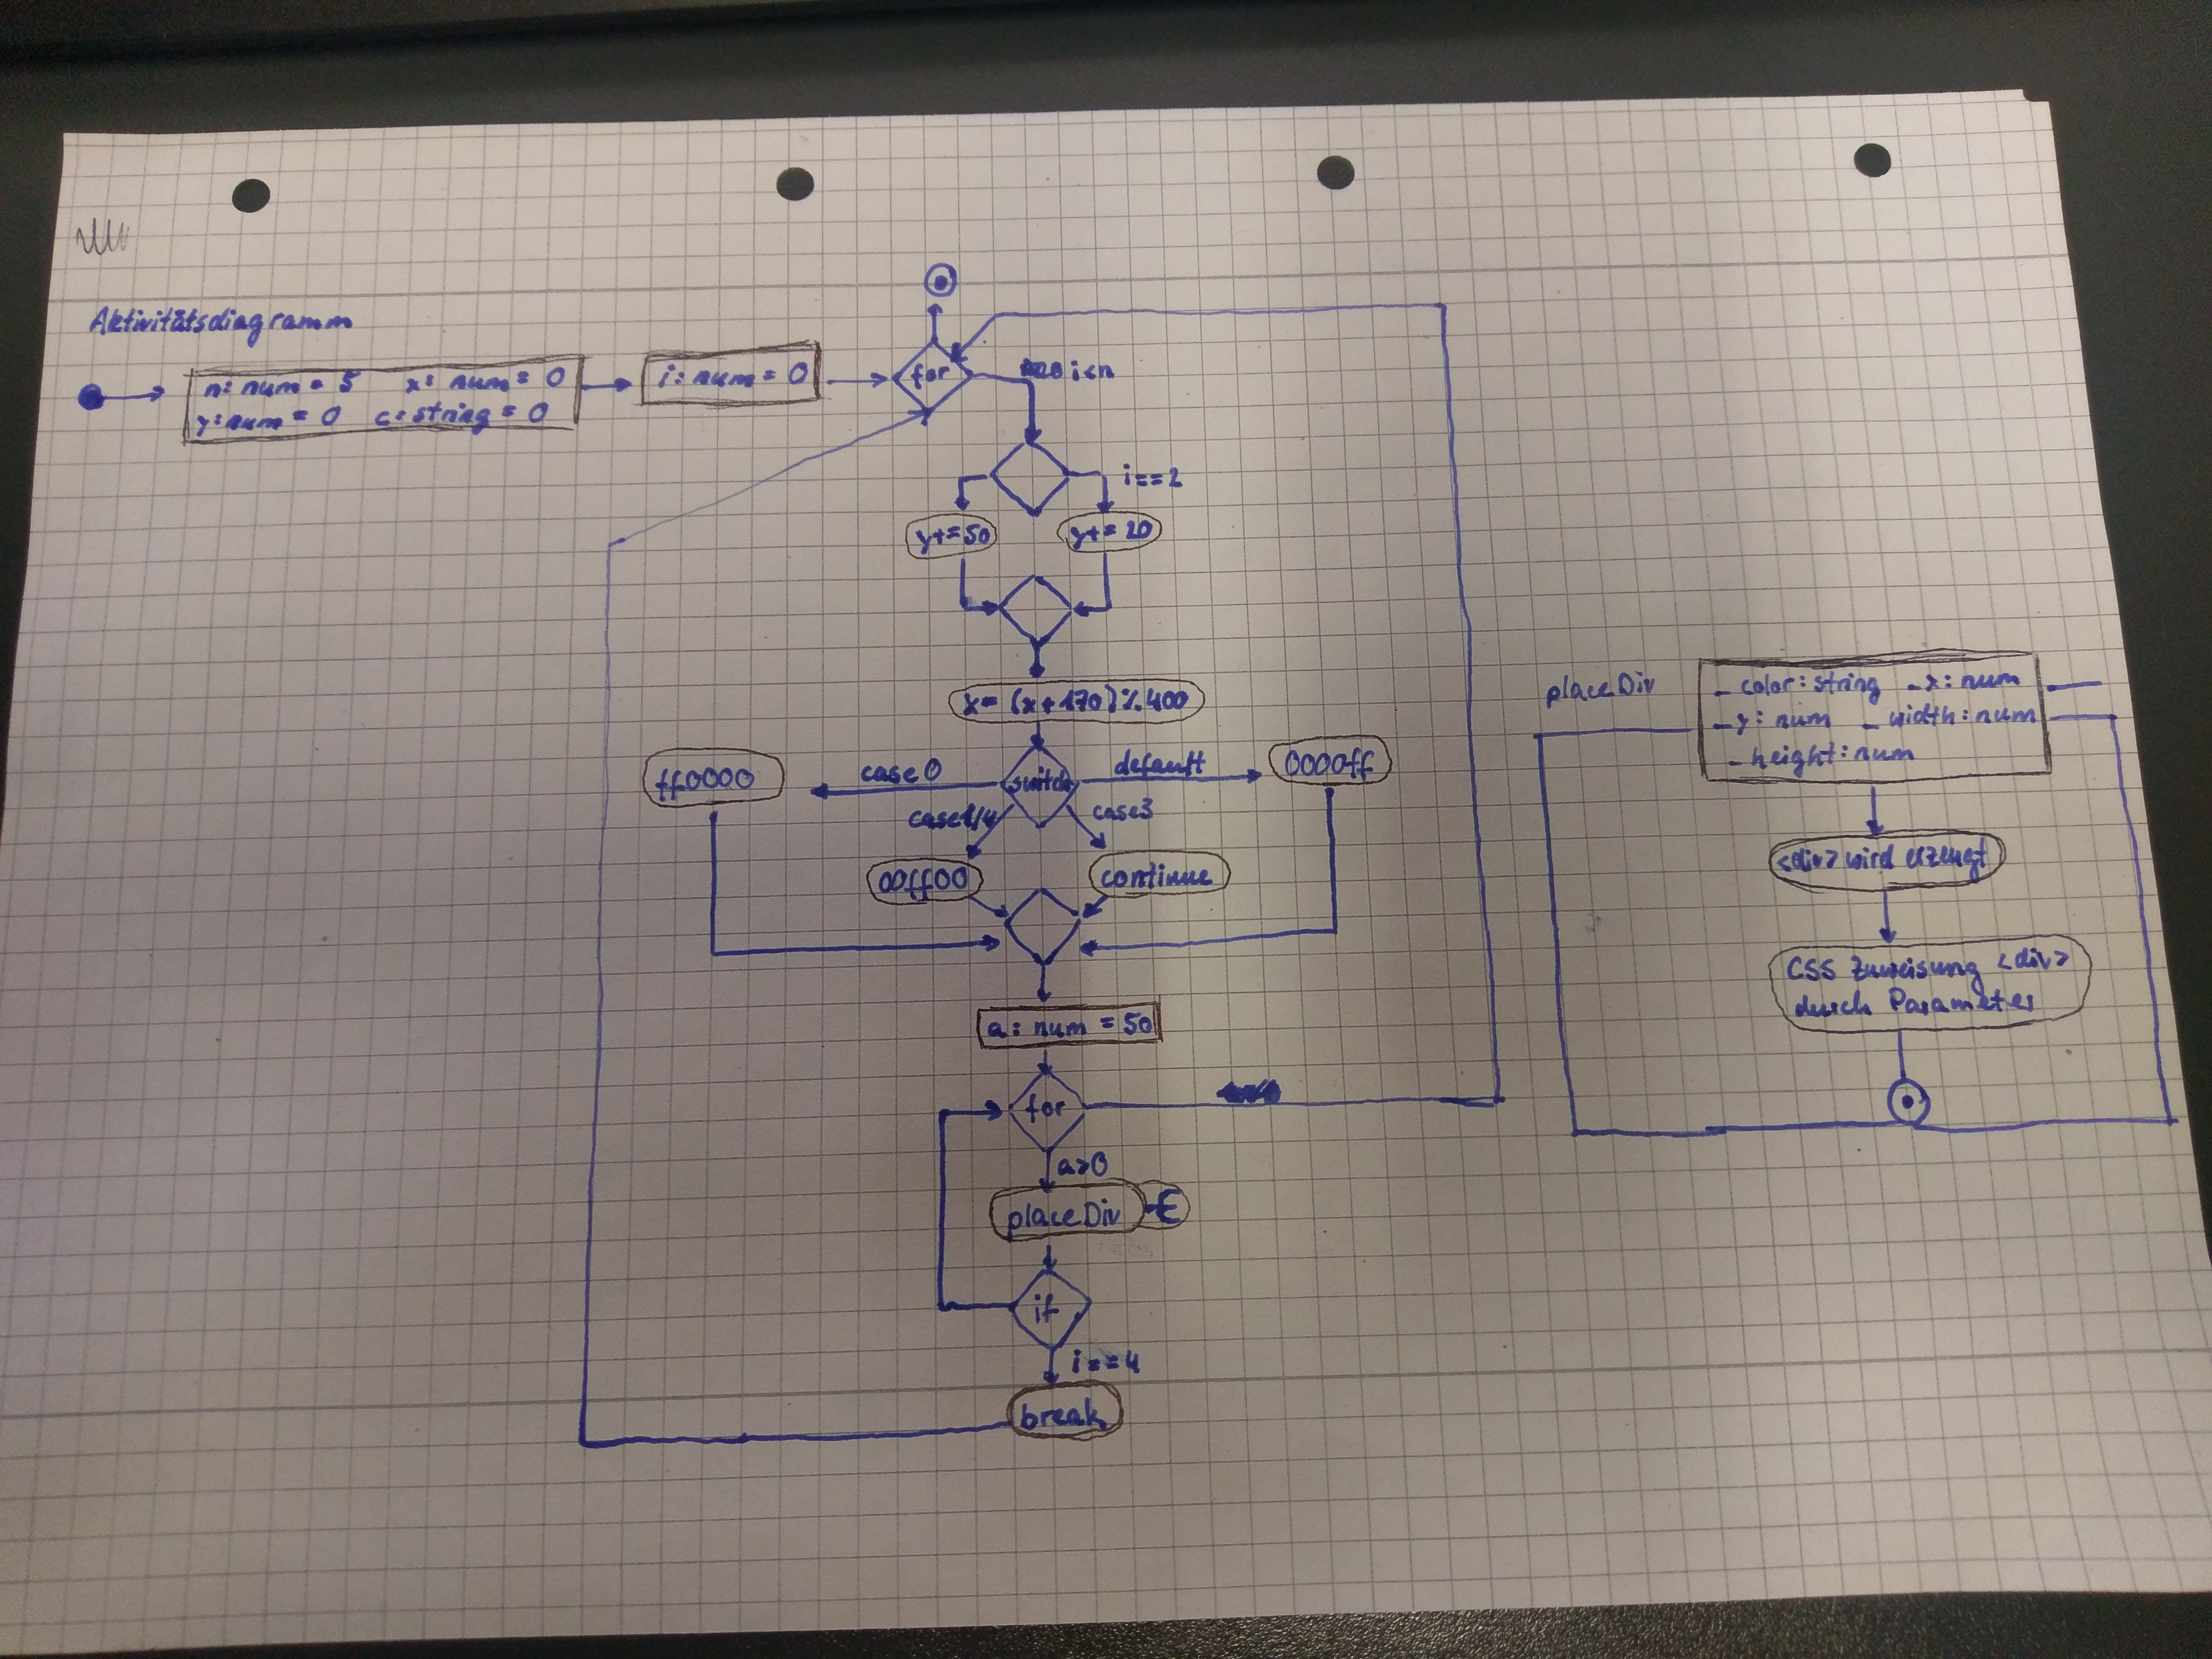 Aktivitätsdiagramm
n: num = 5 x: num = 0
y: num = 0 c: string = 0
i: num = 0
for
i<n
i==2
y+=50
y+=20
x= (x+170)%400
switch
case 0
default
case1/4
case3
ff0000
0000ff
00ff00
continue
a: num = 50
for
a>0
placeDiv
if
i==4
break
placeDiv
_color: string _x: num
_y: num _width: num
_height: num
<div> wird erzeugt
CSS Zuweisung <div>
durch Parameter